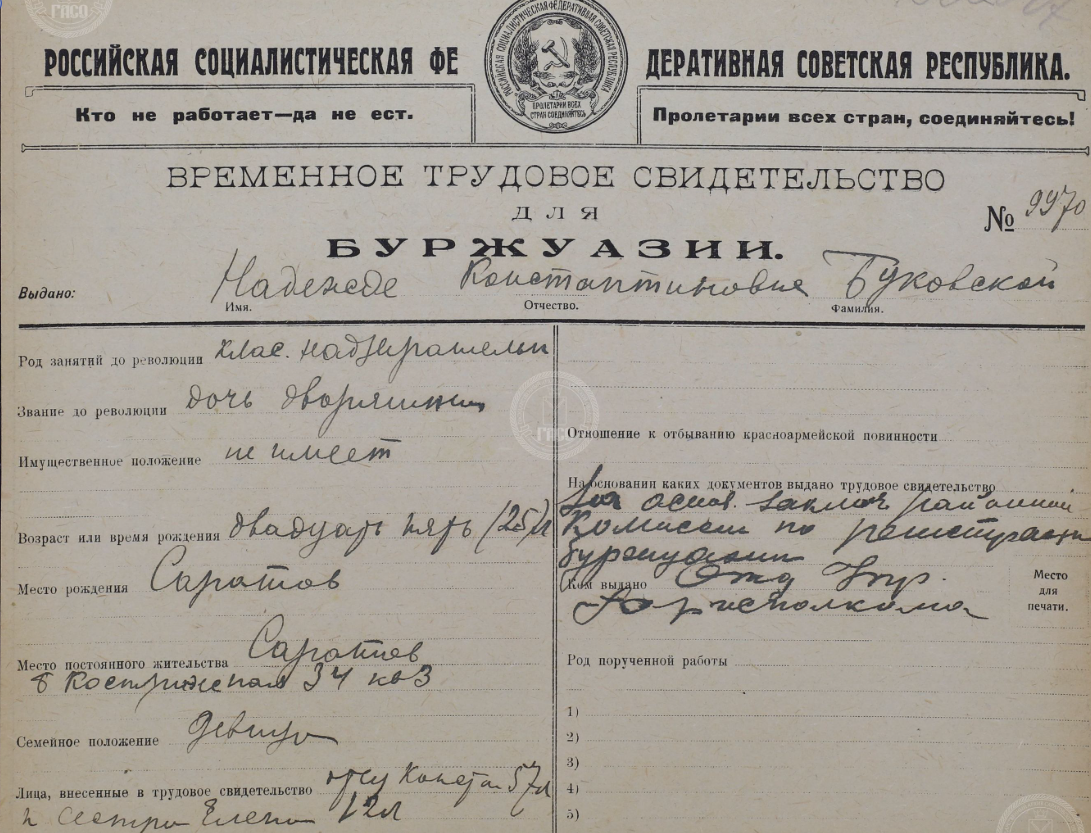 РОССИЙСКАЯ СОЦИАЛИСТИЧЕСКАЯ ФЕ ДЕРАТИВНАЯ СОВЕТСКАЯ РЕСПУБЛИКА.
ПРОЛЕТАРИИ ВСЕХ
СТРАН СОЕДИНЯЙТЕСЬ
Кто не работает—да не ест.
Пролетарии всех стран, соединяйтесь!
ВРЕМЕННОЕ ТРУДОВОЕ СВИДЕТЕЛЬСТВО
ДЛЯ
№ 9970
БУРЖУАЗИИ.
Выдано: Надежде Константиновне Буковской
Имя. Отчество. Фамилия.
Род занятий до революции клас. надзирательн
Звание до революции дочь дворянина
Имущественное положение не имеет
Возраст или время рождения двадцать пять (25) л
Место рождения Саратов
Место постоянного жительства Саратов
Б Кострижная 34 кв 3
Семейное положение девица
Лица, внесенные в трудовое свидетельство отец Констан 57 л
и сестра Елена 12 л
Отношение к отбыванию красноармейской повинности
На основании каких документов выдано трудовое свидетельство
На основ. заключ районной
Комиссии по регистрации
буржуазии
Кем выдано Отд Упр.
Горисполкома
Место
для
печати.
Род порученной работы
1)
2)
3)
4)
5)
ГАСО